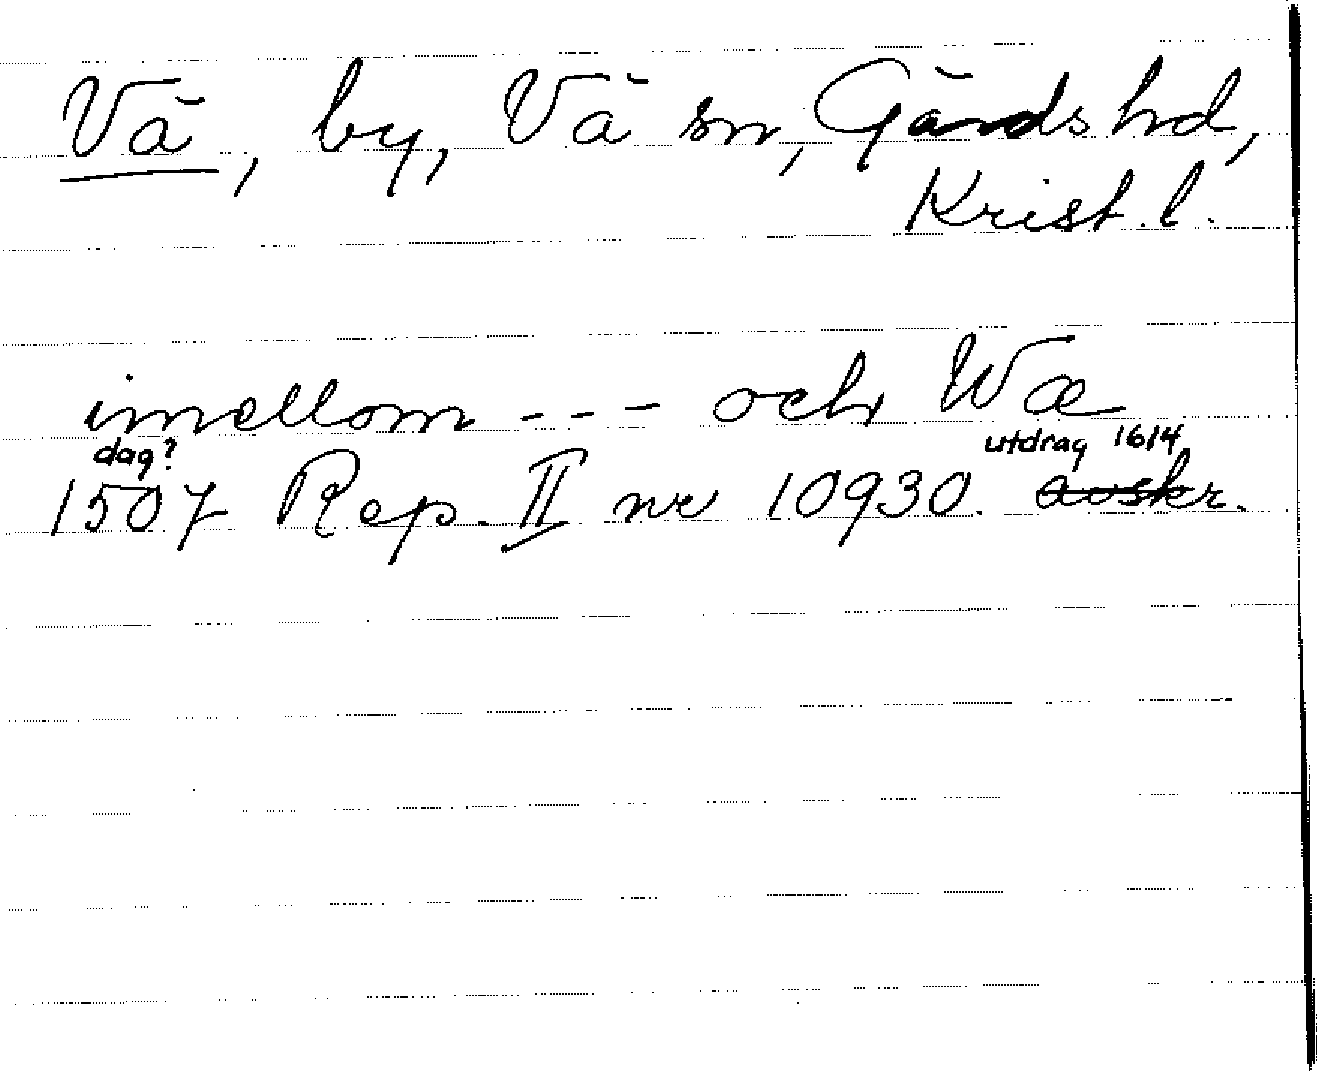 Vä, by, Vä sn, Gärds hd,
Krist. l.
imellom --- och Wæ
dag?
utdrag 1614
1507 Rep. II nr 10930. avskr.